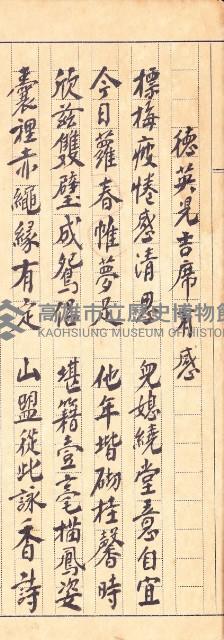 德英兒吉席有感
標梅疲倦感清思 兒媳繞堂意自宜
今日蘿春帷夢足 他年堦砌桂馨時
欣茲雙璧成鴛侶 堪籍壹毫描鳳姿
囊裡赤繩緣有定 山盟從此詠香詩
高雄市立歷史博物館
KAOHSIUNG MUSEUM OF HISTORY